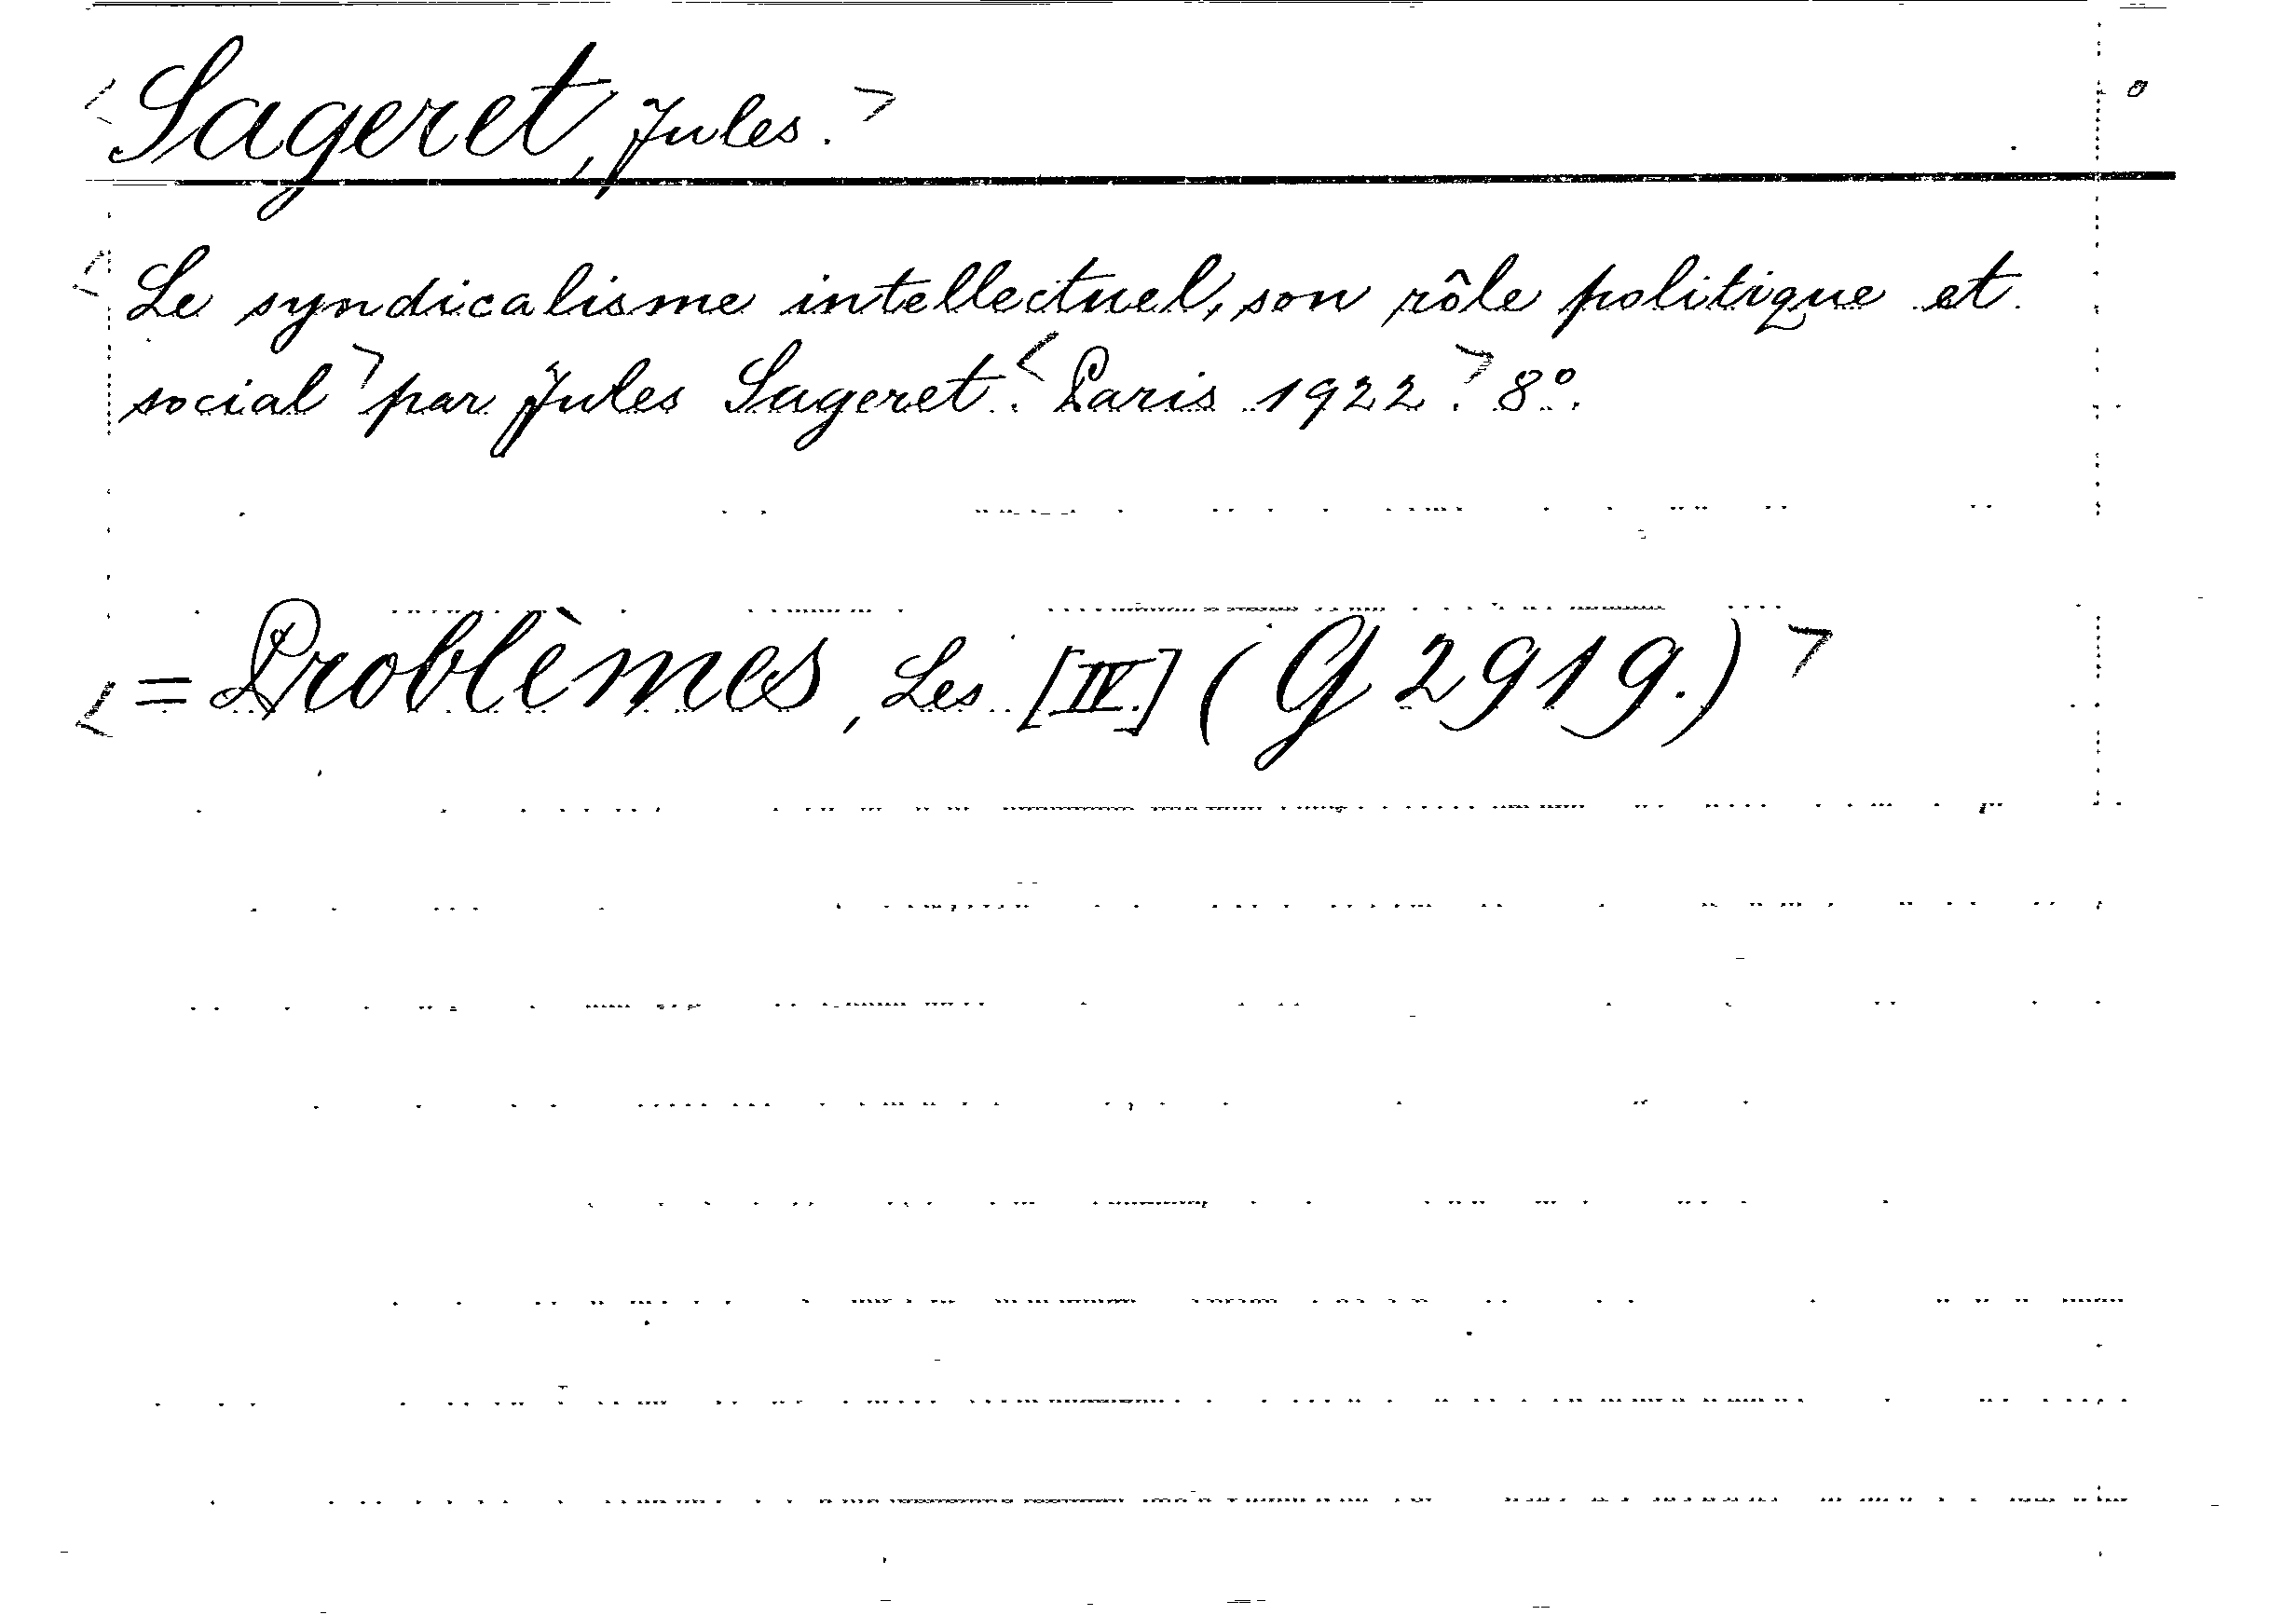 <Sageret, Jules.>
<Le syndicalisme intellectuel, son rôle politique et
social> par Jules Sageret.<Paris 1922.> 8°.
<= Problèmes, Les [IV.] (G 2919.)>